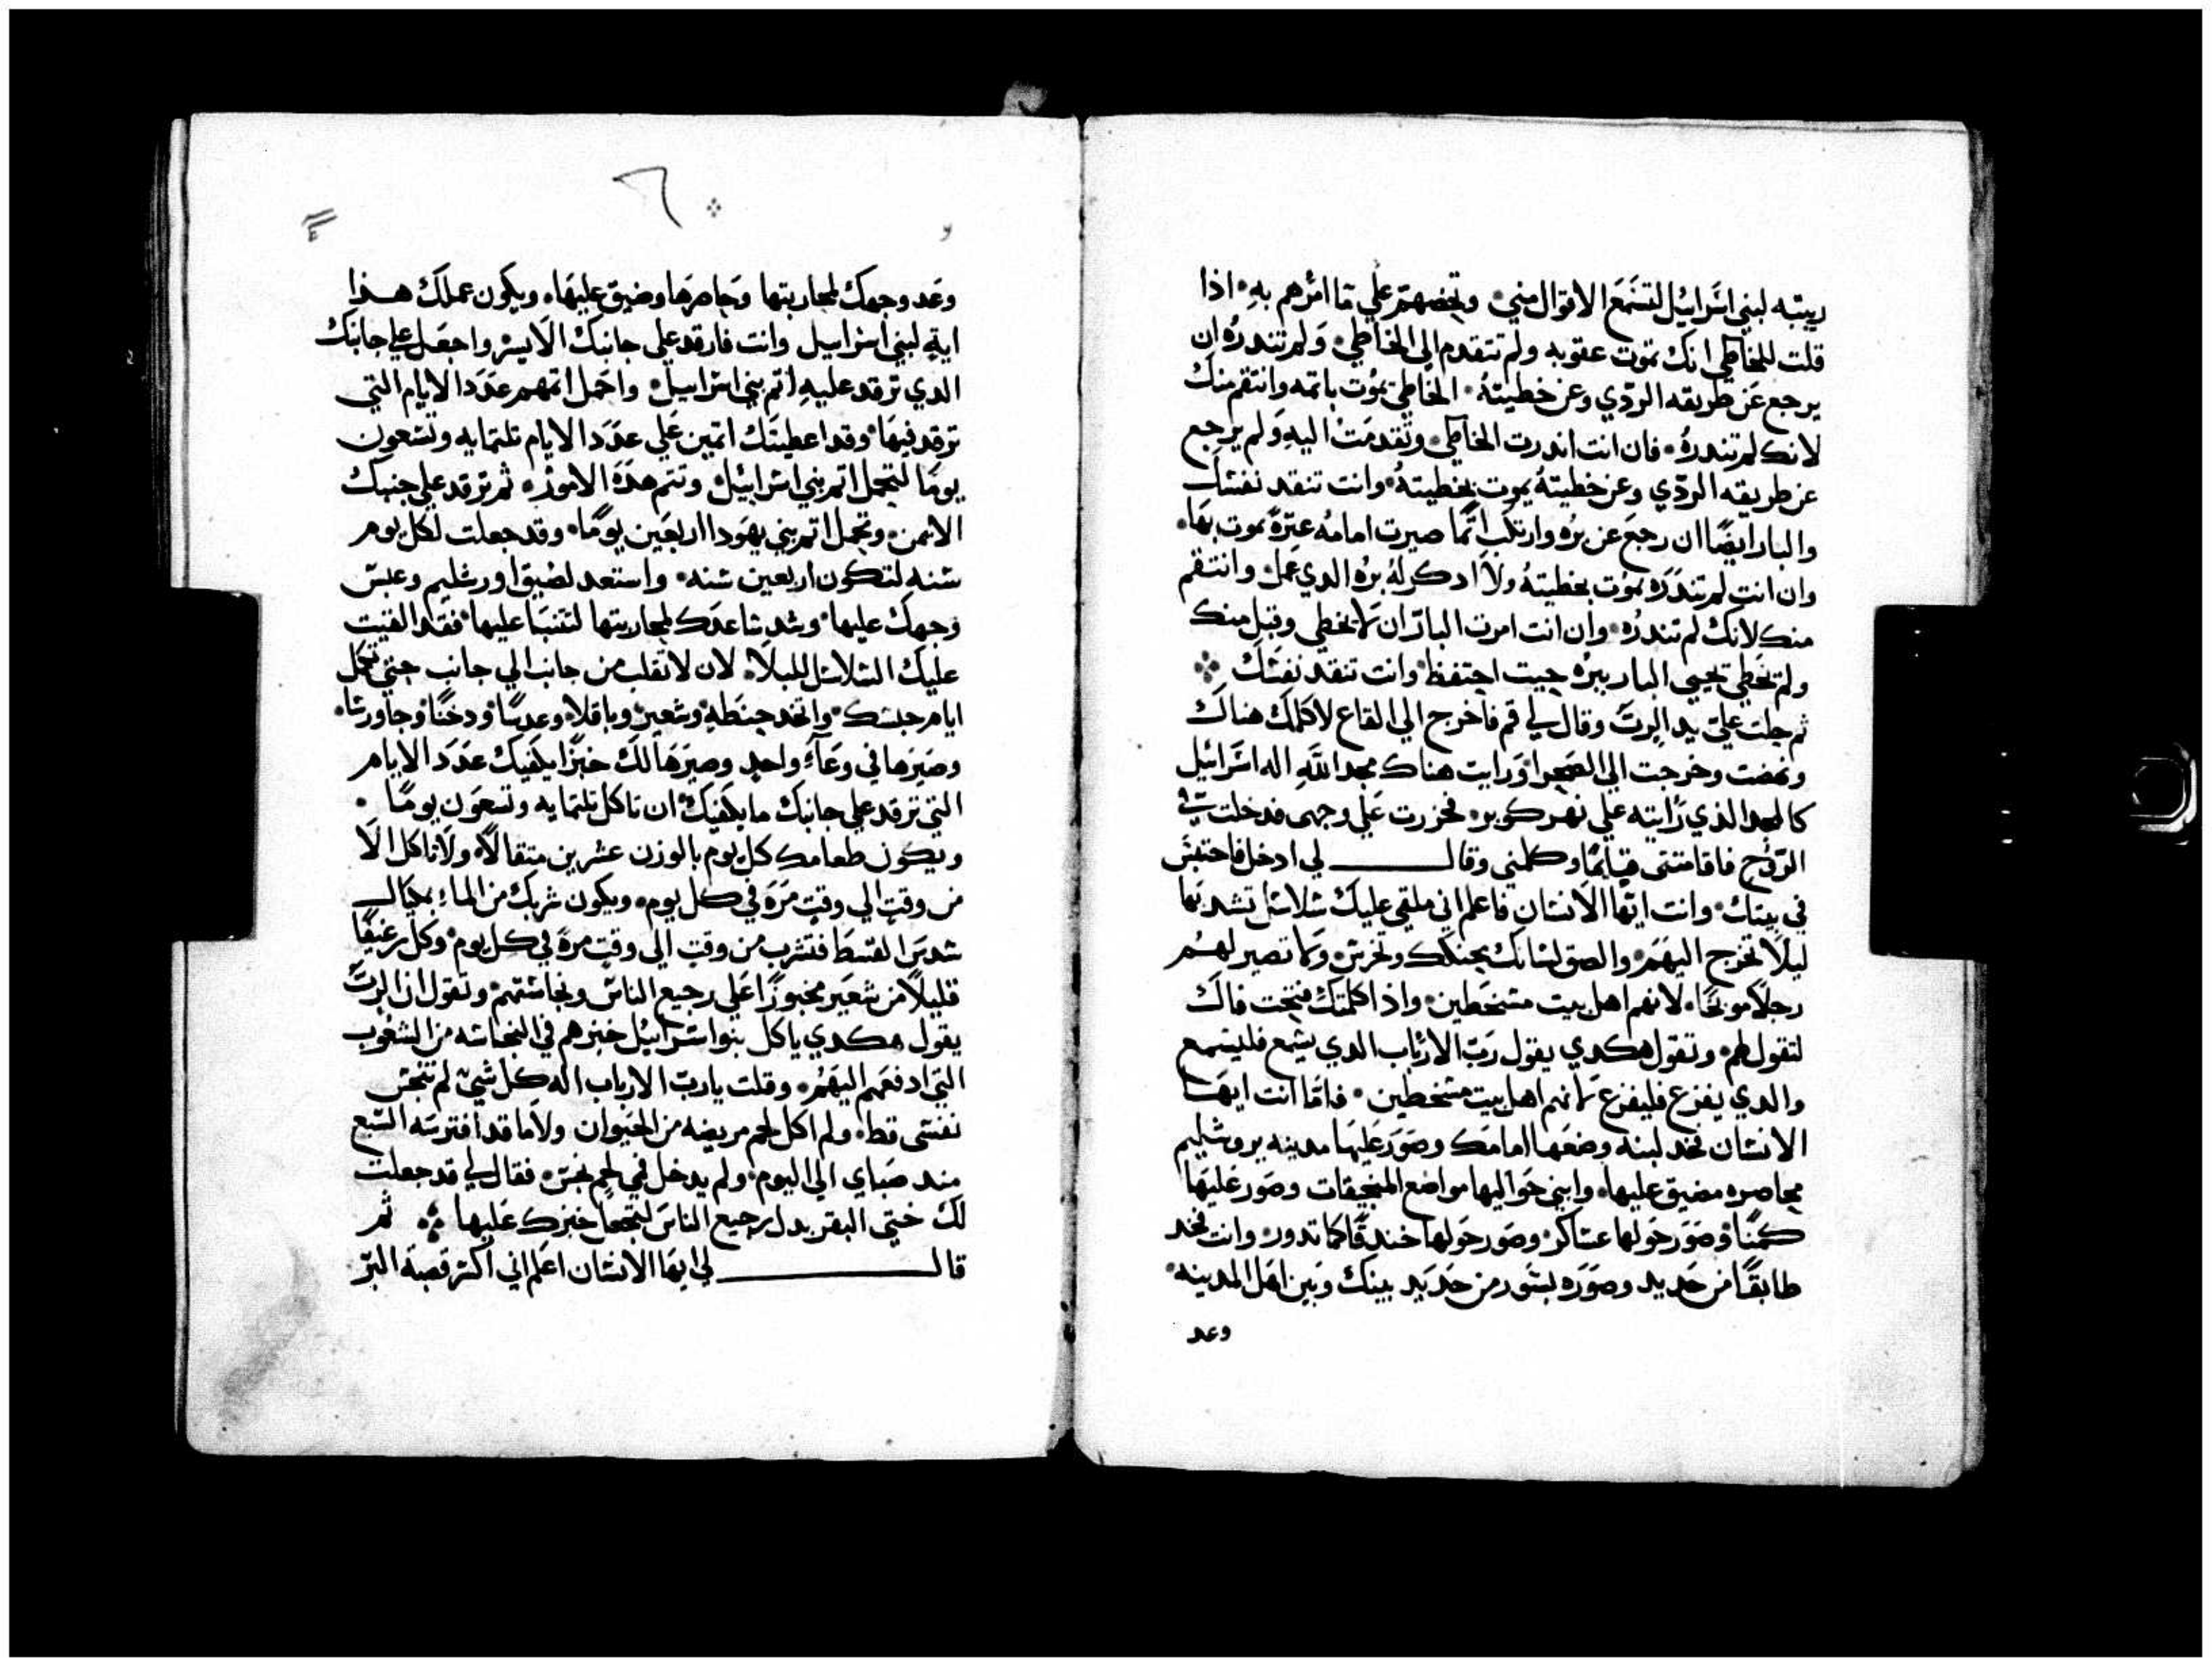 ربيته لبني اسرائيل لتسمع الاقوال مني وتخضهم علي ما امرهم به اذا
قلت للخاطي انك تموت عقوبه ولم تتقدم الي الخاطي ولم تندره ان
يرجع عن طريقه الردي وعن خطيته الخاطي يموت باتمه وانتقم منك
لانك لم تندره فان انت اندرت الخاطي وتقدمت اليه ولم يرجع
عن طريقه الردي وعن خطيته يموت بخطيته وانت تنقد نفسك
والبار ايضًا ان رجع عن بره وارتكب اتمًا صيرت امامه عترة يموت بها
وان انت لم تندره يموت بخطيته ولا ادكر له بره الدي عمل وانتقم
منك لانك لم تندره وان انت امرت البار ان لا يخطي وقبل منك
ولم يخطي يحيي البار ببره حيت احتفظ وانت تنقد نفسك
ثم حلت علي يد الرب وقال لي قم فاخرج الي القاع لاكلمك هناك
ونهضت وخرجت الي الصحرا ورايت هناك مجد الله اله اسرائيل
كالمجد الذي رايته علي نهر كوبر فخررت علي وجهي فدخلت في
الروح فاقامتني قيامًا وكلمني وقال لي ادخل فاحتبس
في بيتك وانت ايها الانسان فاعلم اني ملقي عليك سلاسل تشد بها
ليلا تخرج اليهم والصق لسانك بحنكك وتخرس ولا تصير لهم
رجلاً موبخًا لانهم اهل بيت مسخطين واذا كلمتك فتحت فاك
لتقول لهم وتقول هكدي يقول رب الارباب الدي يسمع فليسمع
والدي يفزع فليفزع لانهم اهل بيت مسخطين فاما انت ايها
الانسان فخد لبنه وضعها امامك وصور عليها مدينه يروشليم
محاصره مضيق عليها وابني حواليها مواضع المنجنيقات وصور عليها
كمنًا وصور حولها عساكر وصور حولها خندقًا كما تدور وانت فخد
طابقًا من حديد وصوره بسور من حديد بينك وبين اهل المدينه
وعد
٦
وعد وجهك لمحاربتها وحاصرها وضيق عليها ويكون عملك هذا
اية لبني اسراييل وانت فارقد علي جانبك الايسر واجعل علي جانبك
الدي ترقد عليه اتم بني اسراييل واحمل اتمهم عدد الايام التي
ترقد فيها وقد اعطيتك اتمين علي عدد الايام تلتمايه وتسعون
يومًا لتحمل اتم بني اسرائيل وتتم هده الامور ثم ترقد علي جنبك
الايمن وتحمل اتم بني يهودا اربعين يومًا وقد جعلت لكل يوم
سنه لتكون اربعين سنه واستعد لضيق اورشليم وعبس
وجهك عليها وشد ساعدك لمحاربتها لتتنبا عليها فقد القيت
عليك السلاسل لان لا تقلب من جانب الي جانب حتي تكمل
ايام حبسك واتخد حنطه وشعير وباقلا وعدسًا ودخنًا وجاورسًا
وصيرها في وعاء واحد وصيرها لك خبزًا يكفيك عدد الايام
التي ترقد علي جانبك ما يكفيك ان تاكل تلتمايه وتسعون يومًا
ويكون طعامك كل يوم بالوزن عشرين متقالاً ولا تاكل الا
من وقت الي وقت مرة في كل يوم ويكون شربك من الماء بمكيال
سدس القسط فتشرب من وقت الي وقت مرة في كل يوم وكل رغيفًا
قليلاً من شعير مخبوزًا علي رجيع الناس ونجاستهم وتقول ان الرب
يقول هكدي ياكل بنو اسرائيل خبزهم في النجاسه من الشعوب
التي ادفعهم اليهم وقلت يا رب الارباب اله كل شي لم تنجس
نفسي قط ولم اكل لحم مريضه من الحيوان ولا ما قد افترسه السبع
مند صباي الي اليوم ولم يدخل في لحم نجس فقال لي قد جعلت
لك ختي البقر بدل رجيع الناس خبزك عليها ثم
قال لي ايها الانسان اعلم اني اكسر قصبة البر